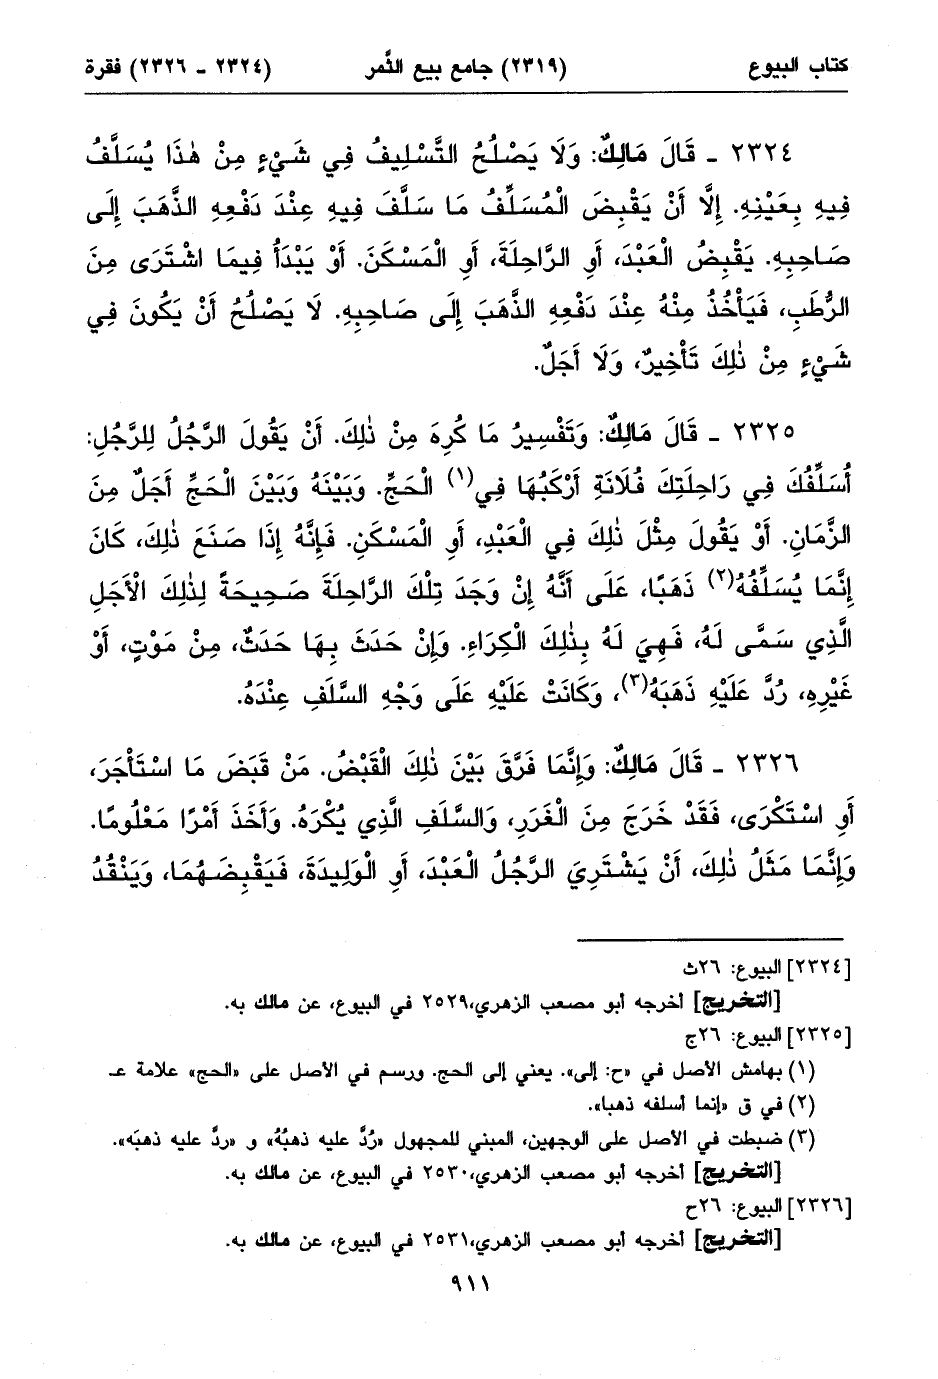 كتاب البيوع (٢٣١٩) جامع بيع الثَّمر (٢٣٢٤ ـ ٢٣٢٦) فقرة
٢٣٢٤ ـ قَالَ مَالِكٌ: وَلَا يَصْلُحُ التَّسْلِيفُ فِي شَيْءٍ مِنْ هٰذَا يُسَلَّفُ
فِيهِ بِعَيْنِهِ. إِلَّا أَنْ يَقْبِضَ الْمُسَلِّفُ مَا سَلَّفَ فِيهِ عِنْدَ دَفْعِهِ الذَّهَبَ إِلَى
صَاحِبِهِ. يَقْبِضُ الْعَبْدَ، أَوِ الرَّاحِلَةَ، أَوِ الْمَسْكَنَ. أَوْ يَبْدَأُ فِيمَا اشْتَرَى مِنَ
الرُّطَبِ، فَيَأْخُذُ مِنْهُ عِنْدَ دَفْعِهِ الذَّهَبَ إِلَى صَاحِبِهِ. لَا يَصْلُحُ أَنْ يَكُونَ فِي
شَيْءٍ مِنْ ذٰلِكَ تَأْخِيرٌ، وَلَا أَجَلٌ.
٢٣٢٥ ـ قَالَ مَالِكٌ: وَتَفْسِيرُ مَا كُرِهَ مِنْ ذٰلِكَ. أَنْ يَقُولَ الرَّجُلُ لِلرَّجُلِ:
أُسَلِّفُكَ فِي رَاحِلَتِكَ فُلَانَةِ أَرْكَبُهَا فِي(١) الْحَجِّ. وَبَيْنَهُ وَبَيْنَ الْحَجِّ أَجَلٌ مِنَ
الزَّمَانِ. أَوْ يَقُولَ مِثْلَ ذٰلِكَ فِي الْعَبْدِ، أَوِ الْمَسْكَنِ. فَإِنَّهُ إِذَا صَنَعَ ذٰلِكَ، كَانَ
إِنَّمَا يُسَلِّفُهُ(٢) ذَهَبًا، عَلَى أَنَّهُ إِنْ وَجَدَ تِلْكَ الرَّاحِلَةَ صَحِيحَةً لِذٰلِكَ الْأَجَلِ
الَّذِي سَمَّى لَهُ، فَهِيَ لَهُ بِذٰلِكَ الْكِرَاءِ. وَإِنْ حَدَثَ بِهَا حَدَثٌ، مِنْ مَوْتٍ، أَوْ
غَيْرِهِ، رُدَّ عَلَيْهِ ذَهَبَهُ(٣)، وَكَانَتْ عَلَيْهِ عَلَى وَجْهِ السَّلَفِ عِنْدَهُ.
٢٣٢٦ ـ قَالَ مَالِكٌ: وَإِنَّمَا فَرَّقَ بَيْنَ ذٰلِكَ الْقَبْضُ. مَنْ قَبَضَ مَا اسْتَأْجَرَ،
أَوِ اسْتَكْرَى، فَقَدْ خَرَجَ مِنَ الْغَرَرِ، وَالسَّلَفِ الَّذِي يُكْرَهُ. وَأَخَذَ أَمْرًا مَعْلُومًا.
وَإِنَّمَا مَثَلُ ذٰلِكَ، أَنْ يَشْتَرِيَ الرَّجُلُ الْعَبْدَ، أَوِ الْوَلِيدَةَ، فَيَقْبِضَهُمَا، وَيَنْقُدُ
[٢٣٢٤] البيوع: ٢٦ث
[التخريج] أخرجه أبو مصعب الزهري،٢٥٢٩ في البيوع، عن مالك به.
[٢٣٢٥] البيوع: ٢٦ج
(١) بهامش الأصل في «ح: إلى». يعني إلى الحج. ورسم في الأصل على «الحج» علامة عـ
(٢) في ق «إنما أسلفه ذهبا».
(٣) ضبطت في الأصل على الوجهين، المبني للمجهول «رُدَّ عليه ذهبُهُ» و «ردَّ عليه ذهبَه».
[التخريج] أخرجه أبو مصعب الزهري،٢٥٣٠ في البيوع، عن مالك به.
[٢٣٢٦] البيوع: ٢٦ح
[التخريج] أخرجه أبو مصعب الزهري،٢٥٣١ في البيوع، عن مالك به.
٩١١